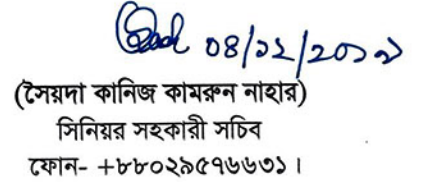 ০৪/১২/২০১৯
(সৈয়দা কানিজ কামরুন নাহার)
সিনিয়র সহকারী সচিব
ফোন- +৮৮০২৯৫৭৬৬৩১।